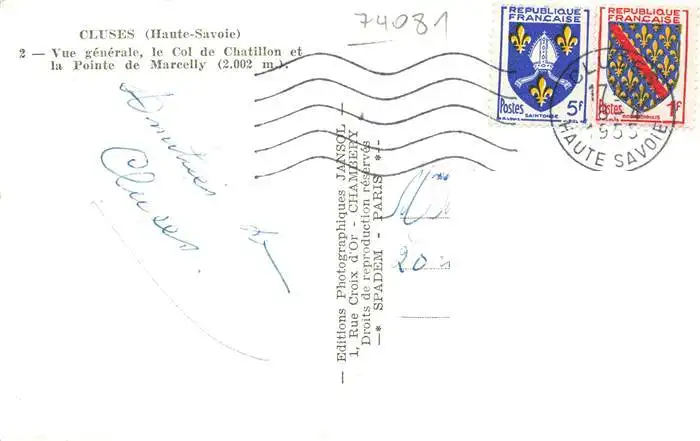 CLUSES (Haute-Savoie)
2 — Vue générale, le Col de Chatillon et
la Pointe de Marcelly (2.002 m.).
74081
Amitiés de
Cluses.
— Editions Photographiques JANSOL —
1, Rue Croix d'Or - CHAMBERY
Droits de reproduction réservés
—* SPADEM - PARIS *—
20
REPUBLIQUE
FRANÇAISE
Postes 5F
SAINTONGE
REPUBLIQUE
FRANÇAISE
Postes 1F
BOURBONNAIS
1955
HAUTE SAVOIE